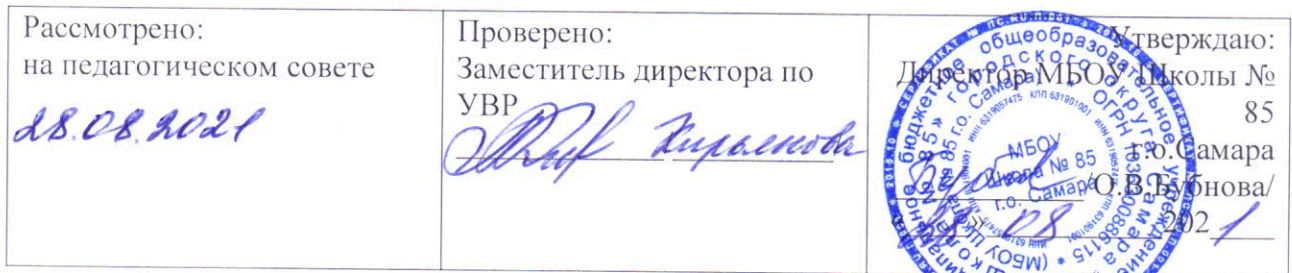 Рассмотрено:
на педагогическом совете
28.08.2021
Проверено:
Заместитель директора по
УВР
Утверждаю:
Директор МБОУ Школы №
85
г.о.Самара
/О.В.Бубнова/
08 2021
МБОУ
Школа № 85
г.о. Самара